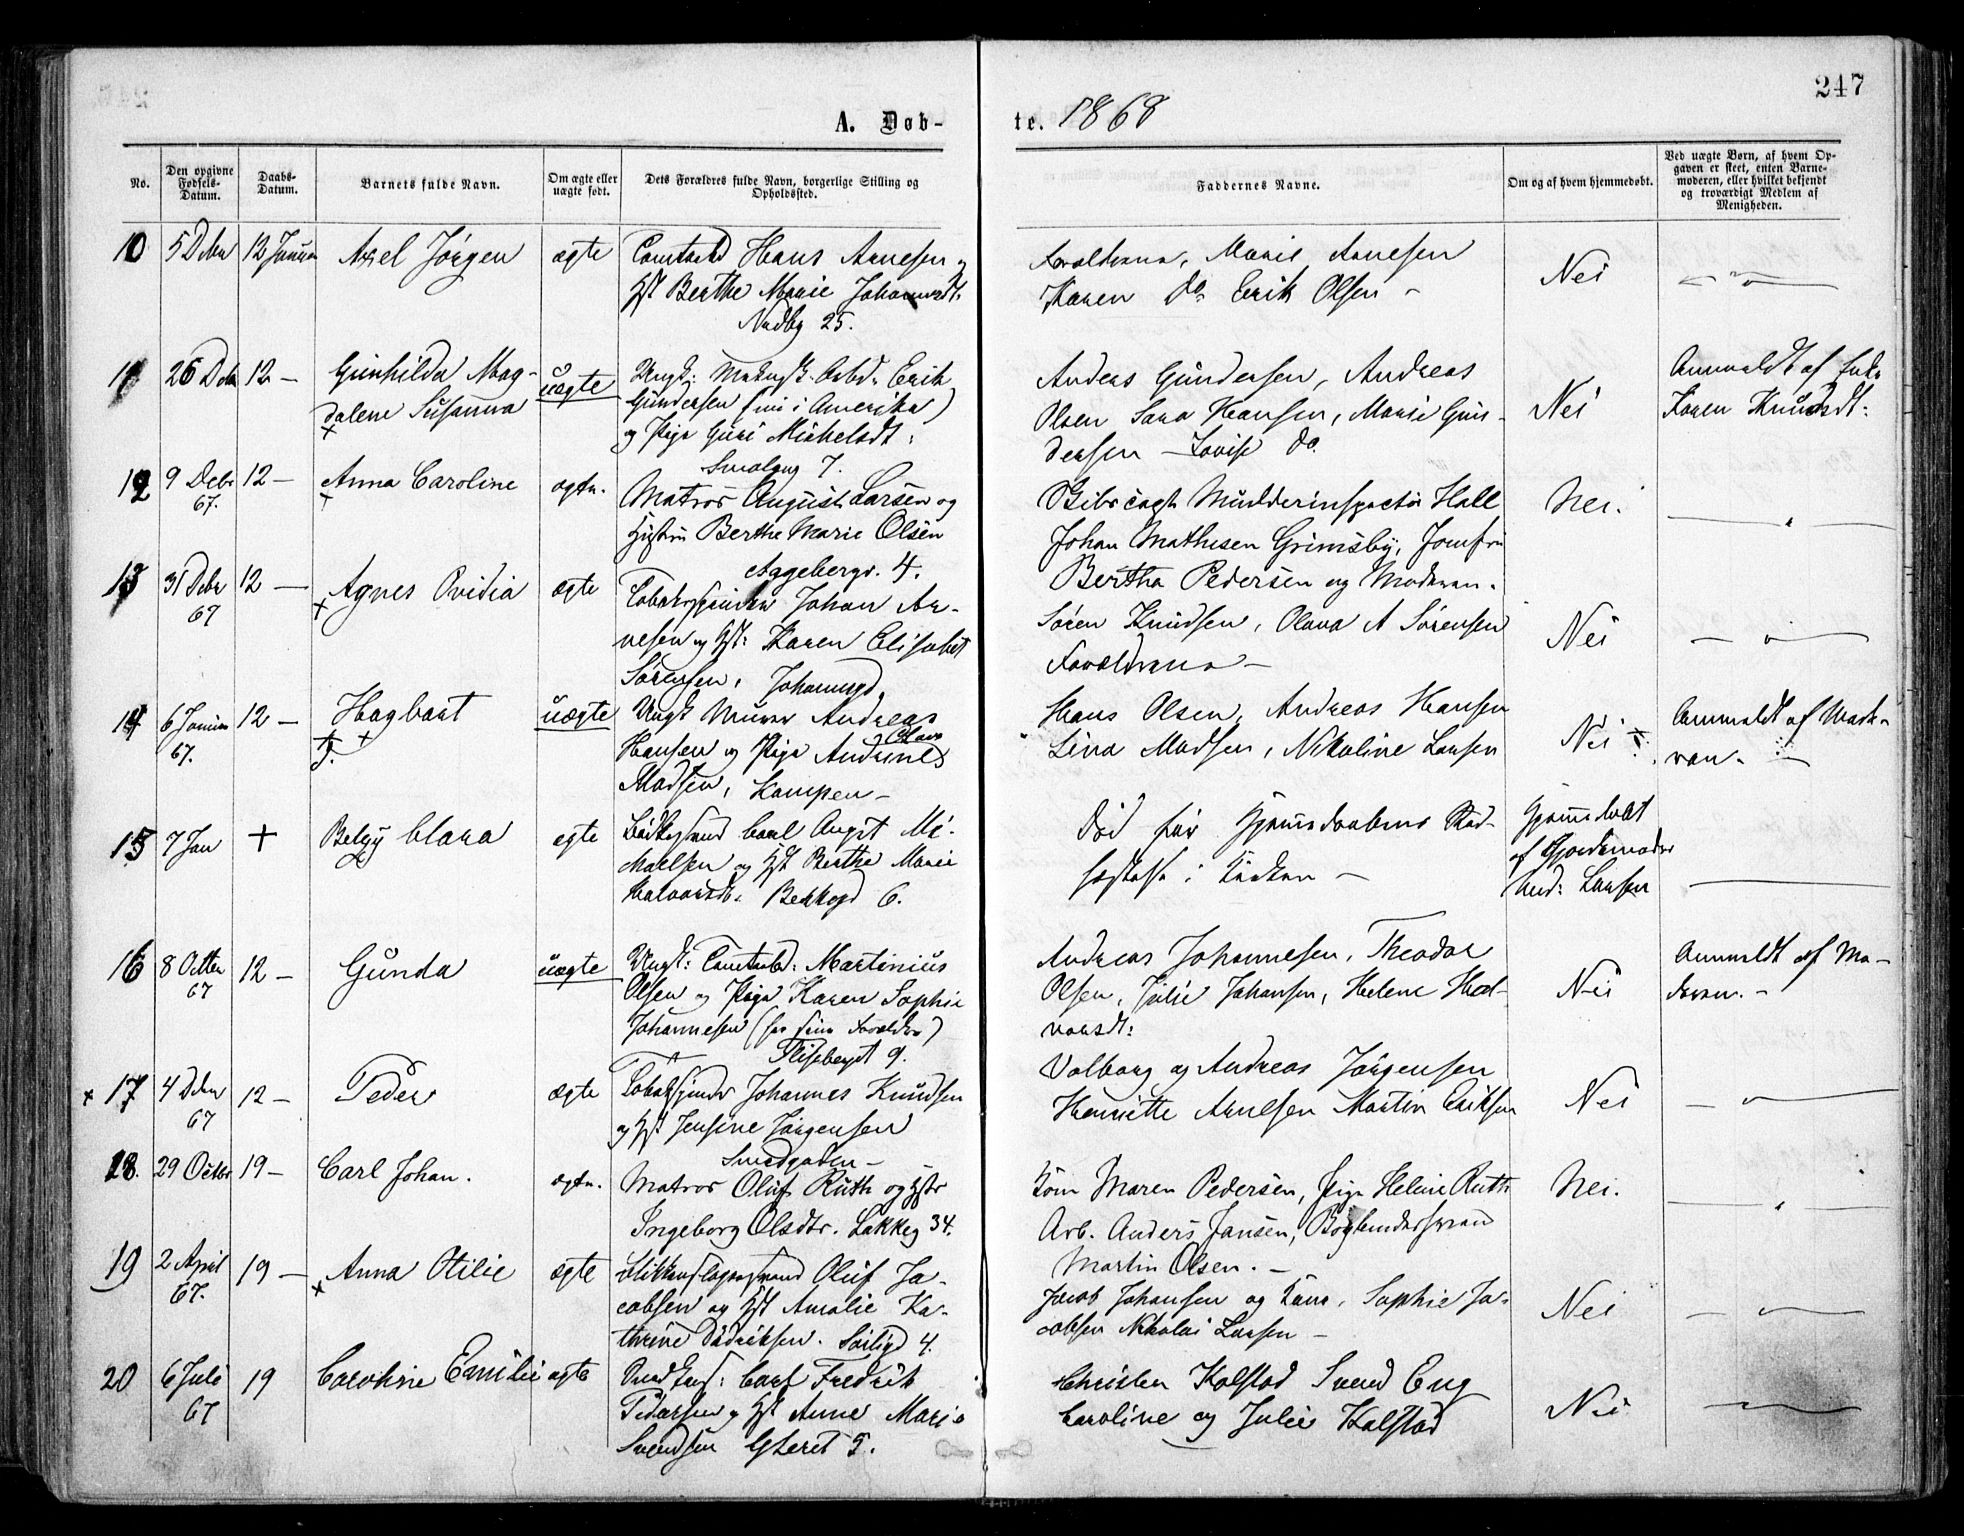 247
A. Døb-
te. 1868
No.
Den opgivne Fødsels-Datum.
Daabs-Datum.
Barnets fulde Navn.
Om ægte eller uægte født.
Dets Forældres fulde Navn, borgerlige Stilling og Opholdssted.
Faddernes Navne.
Om og af hvem hjemmedøbt.
Ved uægte Børn, af hvem Opgaven er skeet, enten Barnemoderen, eller hvilket bekjendt og troværdigt Medlem af Menigheden.
10 5 Dcbr 12 Januar Axel Jørgen ægte
Hans Arnesen og
Hst Berthe Marie Johannesdt.
25.
Forældrene, Marie Arnesen
Karen do Erik Olsen -
Nei
11 26 Dcbr 12 - Gunhilda Mag-
dalene Susanna
uægte
Ungk: Erik
Gundersen (nu i Amerika)
og Pige Guri Michelsdt:
Smalgng 7.
Anders Gundersen, Andreas
Olsen Sara Hansen, Marie Gun-
dersen - Lovise do
Nei
Anmeldt af
Karen Knudsdt:
12 9 Debr 67. 12 - Anna Caroline ægte.
Matros August Larsen og
Hustru Berthe Marie Olsen
Aagebergv. 4.
Mudderinspectør Hall
Johan Mathisen Grimsby, Jomfru
Bertha Pedersen og Moderen.
Nei.
13 31 Debr 67 12 - Agnes Ovidia ægte
Tobakspinder Johan Ar-
nesen og Hst: Karen Elisabet
Sørensen, Johannesgd.
Søren Knudsen, Olava A Sørensen
Forældrene -
Nei
14 6 Januar 67. 12 - Hagbart uægte
Ungk Murer Andreas
Hansen og Pige Andrine Olava
Madsen, Kampen -
Hans Olsen, Andreas Hansen
Lina Madsen, Nikoline Larsen
Nei
Anmeldt af Mode-
ren. -
15 7 Jan + Betzy Clara egte
Carl Augst Mi-
kaelsen og Hst Berthe Marie
Halvorsdt. Bekkegd 6.
Død før Hjemmedaabens Stad-
fæstelse i Kirken -
Hjemmedøbt
af Gjordemoder
And: Larsen
16 8 Octbr 67 12 - Gunda uægte
Ungk: Martinius
Olsen og Pige Karen Sophie
Johannesen (hos sine Forældre)
Flisebergt 9.
Andreas Johannesen, Theodor
Olsen, Julie Johansen, Helene Hal-
vorsdt:
Nei
Anmeldt af Mo-
deren. -
17 4 Dcbr 67 12 - Peder ægte
Tobakspinder Johannes Knudsen
og Hst Jensine Jørgensen
Smedgaden -
Valborg og Andreas Jørgensen
Henriette Arnesen Martin Eriksen
Nei
18. 29 Octbr 19 - Carl Johan. ægte.
Matros Oluf Ruth og Hstr
Ingeborg Olsdtr. Lakkeg 34.
Maren Pedersen, Pige Heline Ruth
Arb. Anders Jansen, Bogbindersvend
Martin Olsen. -
Nei.
19 2 April 67. 19 - Anna Otilie ægte
Oluf Ja-
cobsen og Hst Amalie Ka-
thrine Didriksen. 4.
Jacob Johansen og Kone, Sophie Ja-
cobsen Nikolai Larsen -
Nei
20 6 Juli 67 19 Caroline Emilie ægte
Carl Fredrik
Pedersen og Hst Anne Marie
Svendsen Gteret 5.
Christen Kolstad Svend Eng
Caroline og Julie Kolstad
Nei